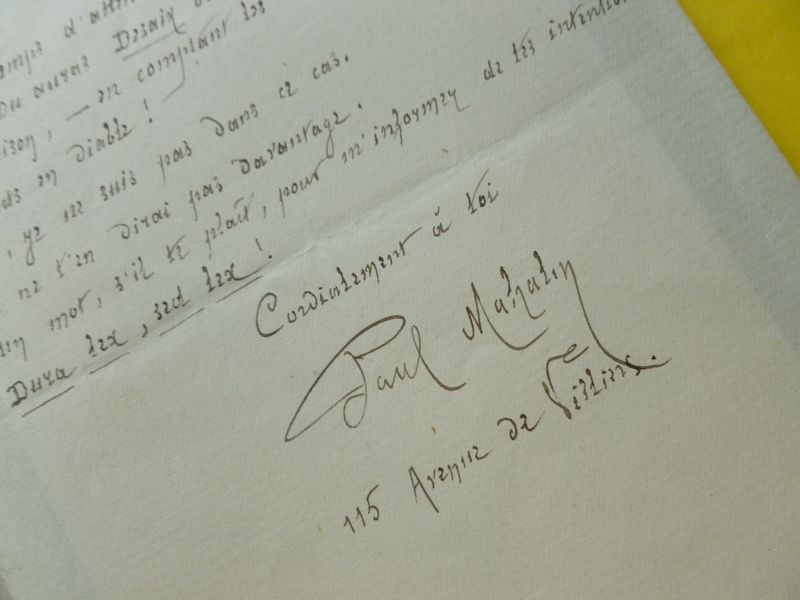 temps d'atten
Tu auras Desaix
raison, — en comptant les
en diable !
, je ne suis pas dans ce cas.
ne t'en dirai pas davantage.
Un mot, s'il te plaît, pour m'informer de tes intentions
Dura lex, sed lex !
Cordialement à toi
Paul Mahalin
115 Avenue de Villiers.